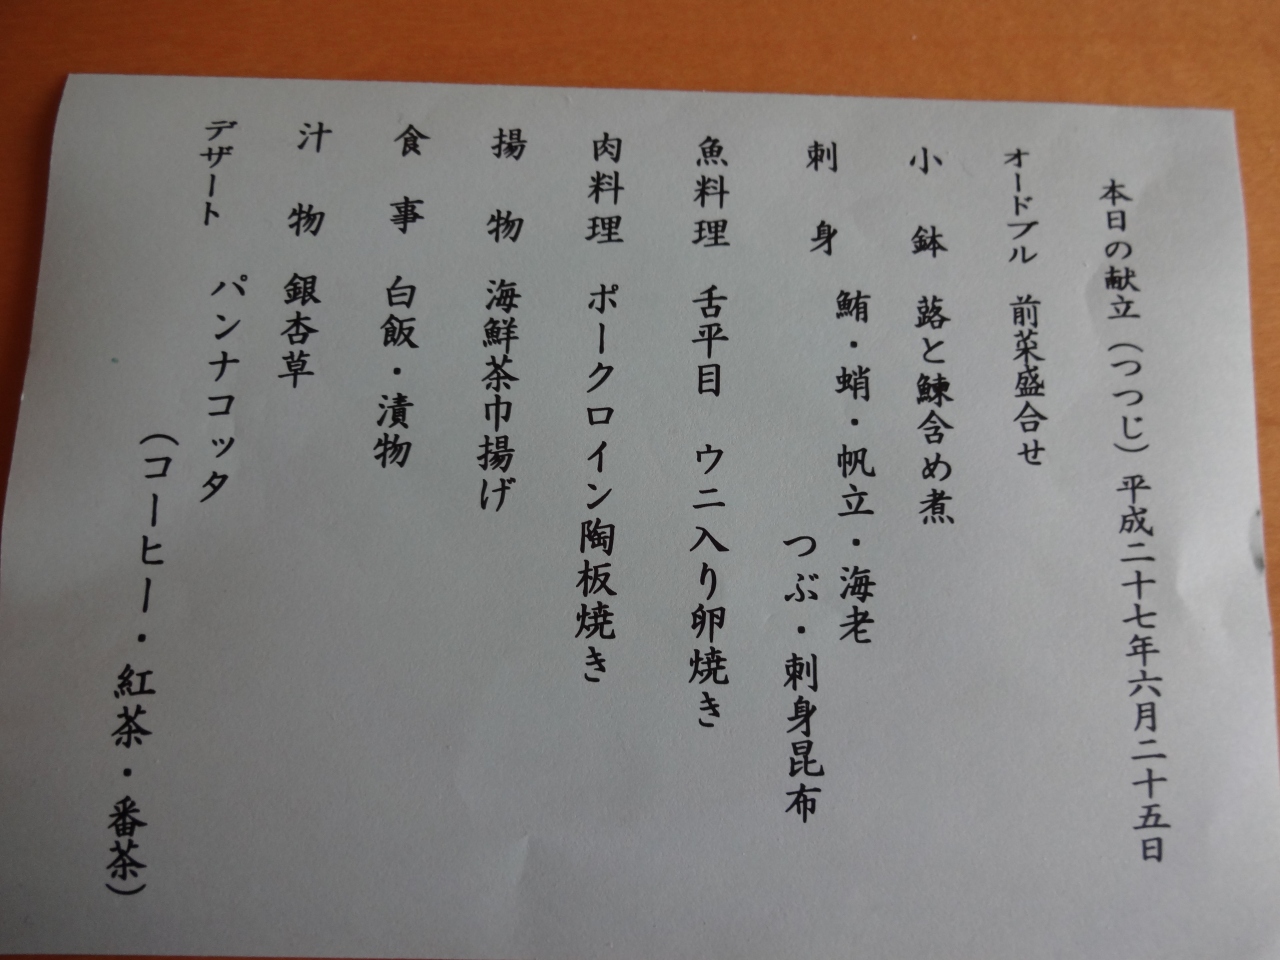 本日の献立（つつじ）平成二十七年六月二十五日
オードブル　前菜盛合せ
小鉢　蕗と鰊含め煮
刺身　鮪・蛸・帆立・海老
つぶ・刺身昆布
魚料理　舌平目　ウニ入り卵焼き
肉料理　ポークロイン陶板焼き
揚物　海鮮茶巾揚げ
食事　白飯・漬物
汁物　銀杏草
デザート　パンナコッタ
（コーヒー・紅茶・番茶）